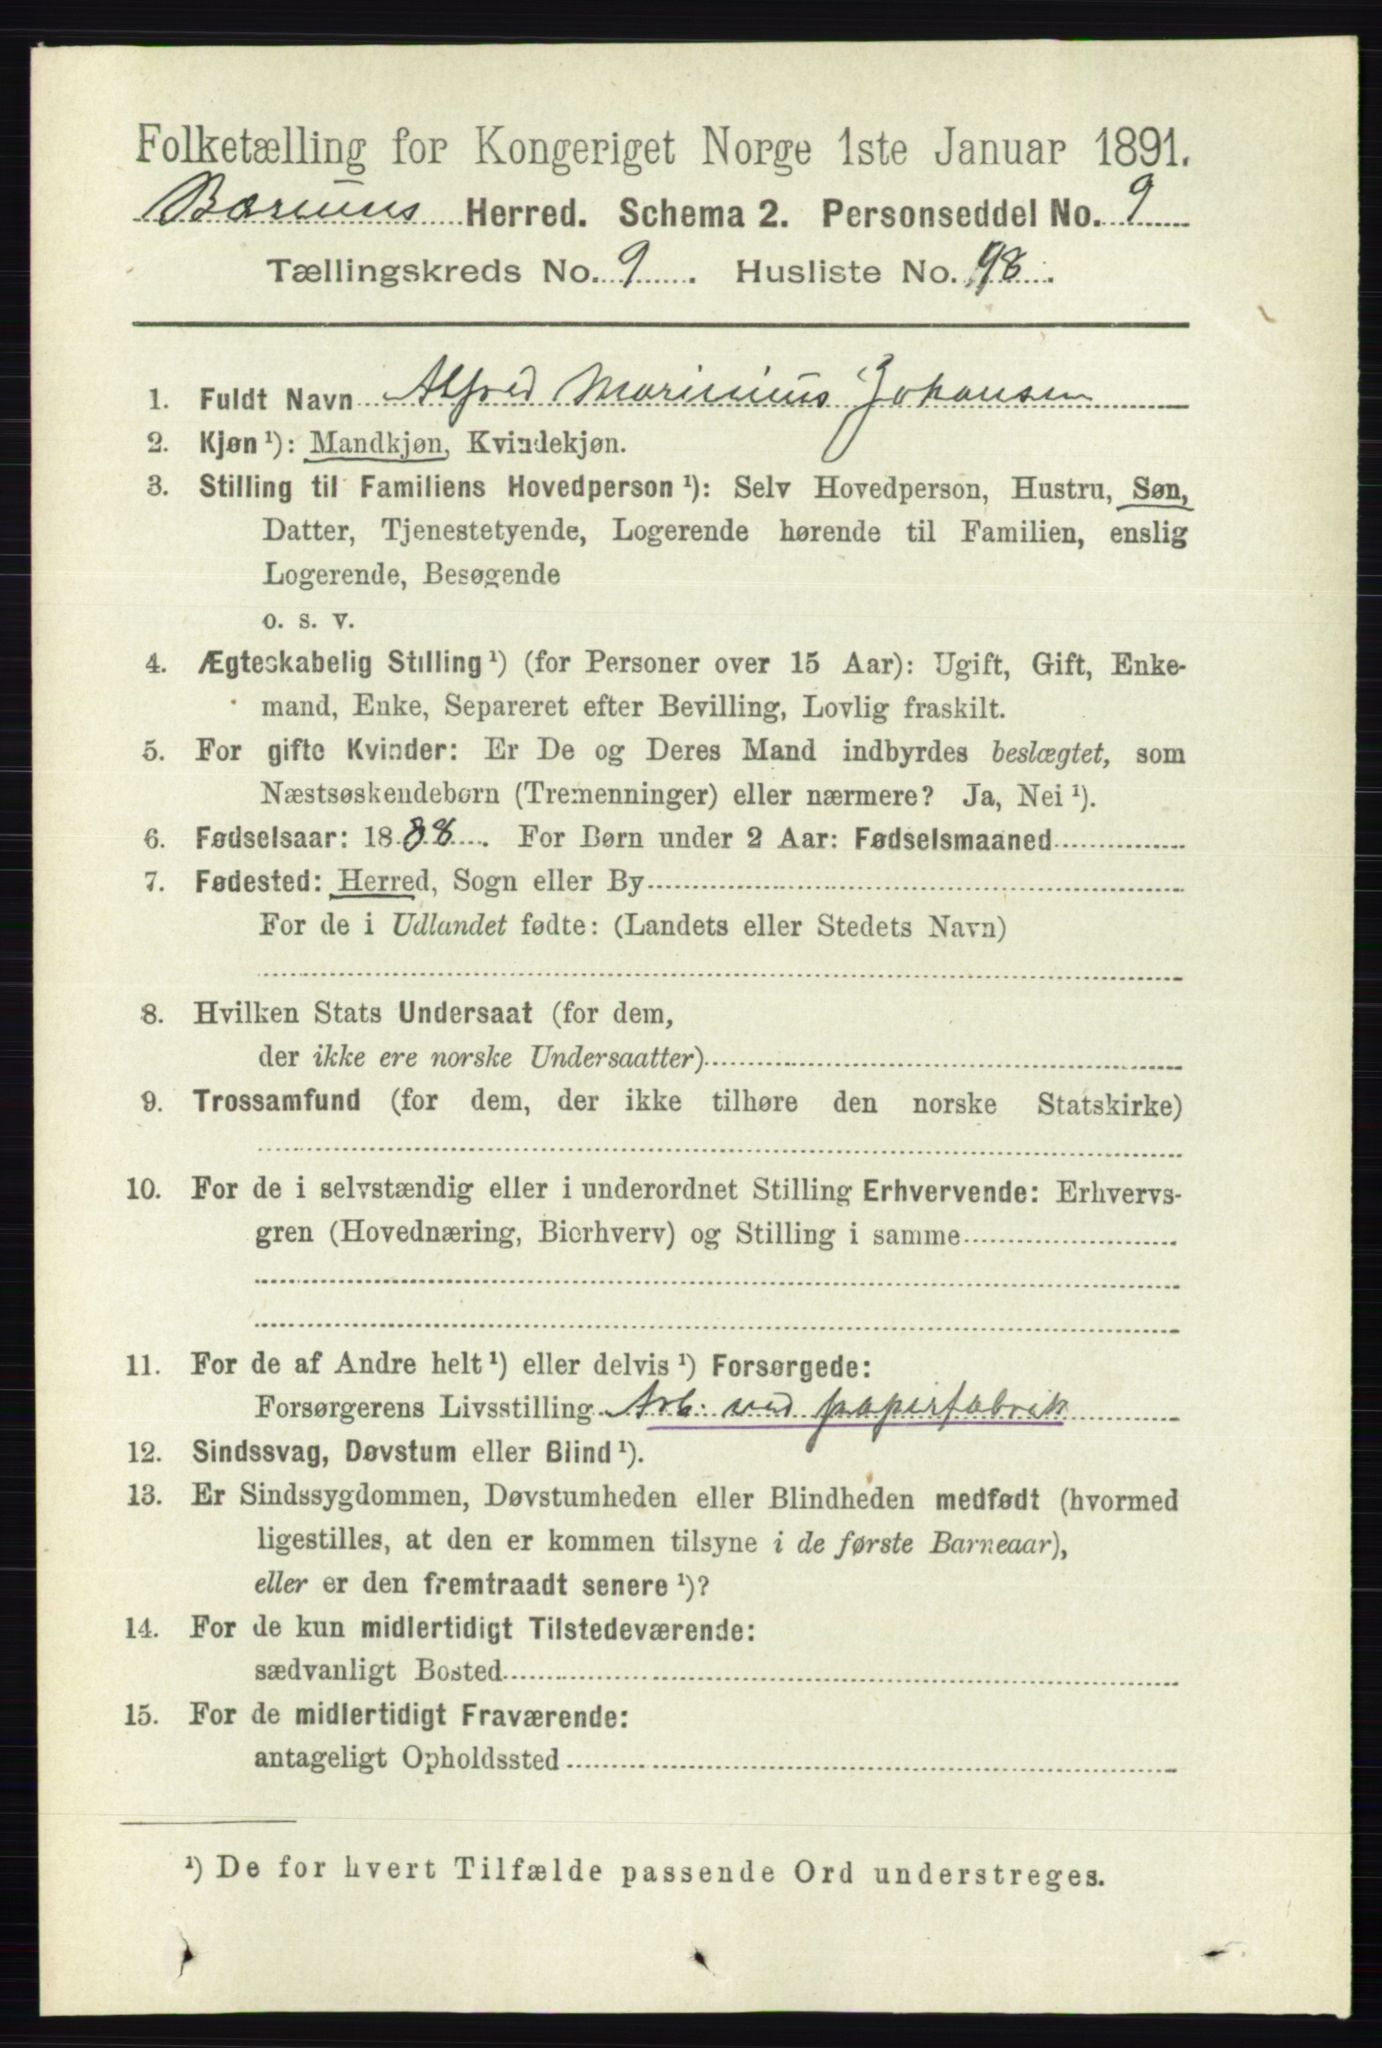 Folketælling for Kongeriget Norge 1ste Januar 1891.
Bærums Herred. Schema 2. Personseddel No. 9
Tællingskreds No. 9. Husliste No. 98.
1. Fuldt Navn Alfred Marinius Johansen
2. Kjøn ¹): Mandkjøn, Kvindekjøn.
3. Stilling til Familiens Hovedperson ¹): Selv Hovedperson, Hustru, Søn,
Datter, Tjenestetyende, Logerende hørende til Familien, enslig
Logerende, Besøgende
o. s. v.
4. Ægteskabelig Stilling ¹) (for Personer over 15 Aar): Ugift, Gift, Enke-
mand, Enke, Separeret efter Bevilling, Lovlig fraskilt.
5. For gifte Kvinder: Er De og Deres Mand indbyrdes beslægtet, som
Næstsøskendebørn (Tremenninger) eller nærmere? Ja, Nei ¹).
6. Fødselsaar: 1888. For Børn under 2 Aar: Fødselsmaaned
7. Fødested: Herred, Sogn eller By
For de i Udlandet fødte: (Landets eller Stedets Navn)
8. Hvilken Stats Undersaat (for dem,
der ikke ere norske Undersaatter)
9. Trossamfund (for dem, der ikke tilhøre den norske Statskirke)
10. For de i selvstændig eller i underordnet Stilling Erhvervende: Erhvervs-
gren (Hovednæring, Bierhverv) og Stilling i samme
11. For de af Andre helt ¹) eller delvis ¹) Forsørgede:
Forsørgerens Livsstilling Arb. ved papirfabrik
12. Sindssvag, Døvstum eller Blind ¹).
13. Er Sindssygdommen, Døvstumheden eller Blindheden medfødt (hvormed
ligestilles, at den er kommen tilsyne i de første Barneaar),
eller er den fremtraadt senere ¹)?
14. For de kun midlertidigt Tilstedeværende:
sædvanligt Bosted
15. For de midlertidigt Fraværende:
antageligt Opholdssted
¹) De for hvert Tilfælde passende Ord understreges.